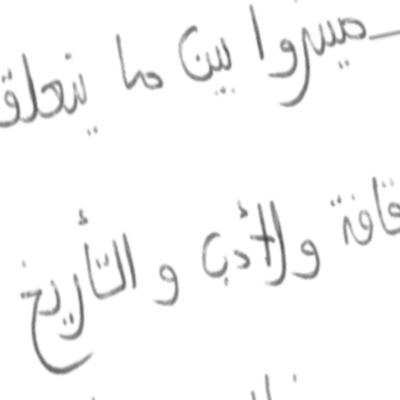 ميزوا بين ما يتعلق
قافة ولأدب و التأريخ